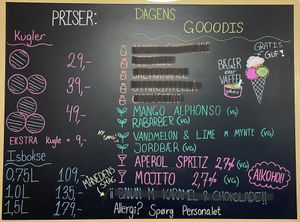 PRISER:
DAGENS GOOODIS
Kugler
29,-
39,-
49,-
EKSTRA Kugle + 9,-
Isbokse
0,75L 109,-
1,0L 135,-
1,5L 179,-
GRATIS GUF!
BÆGER eller VAFFEL
MANGO ALPHONSO (VG)
RABARBER (VG)
VANDMELON & LIME M. MYNTE (VG)
JORDBÆR (VG)
MÅNEDENS
APEROL SPRITZ 2,7% (VG)
MOJITO 2,7% (VG)
ALKOHOL
Allergi? Spørg Personalet